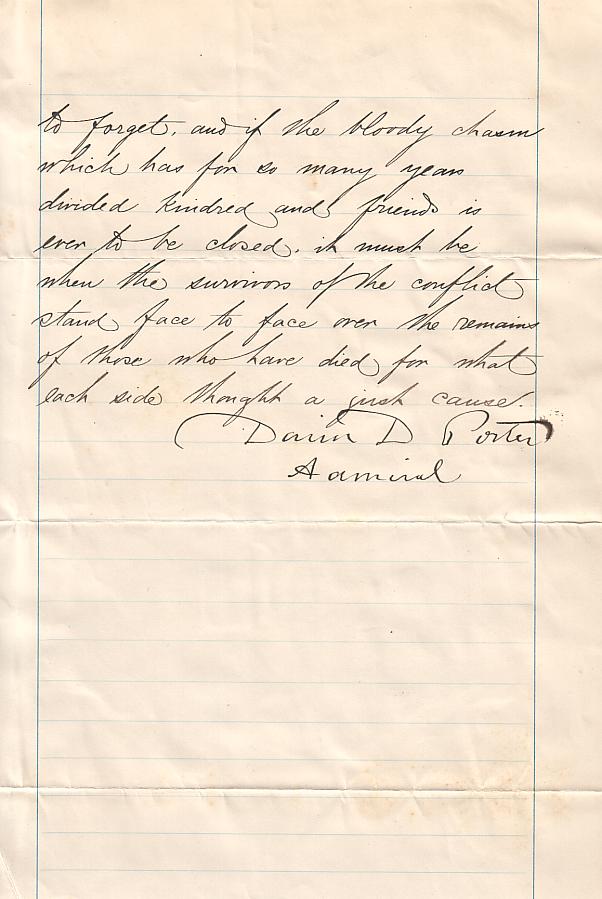 to forget, and if the bloody chasm
which has for so many years
divided kindred and friends is
ever to be closed, it must be
when the survivors of the conflict
stand face to face over the remains
of those who have died for what
each side thought a just cause.
David D Porter
Admiral